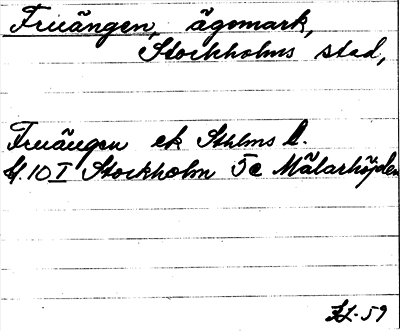 Fruängen, ägomark,
Stockholms stad,
Fruängen ek Sthlms l.
10 I Stockholm 5c Mälarhöjden
-59